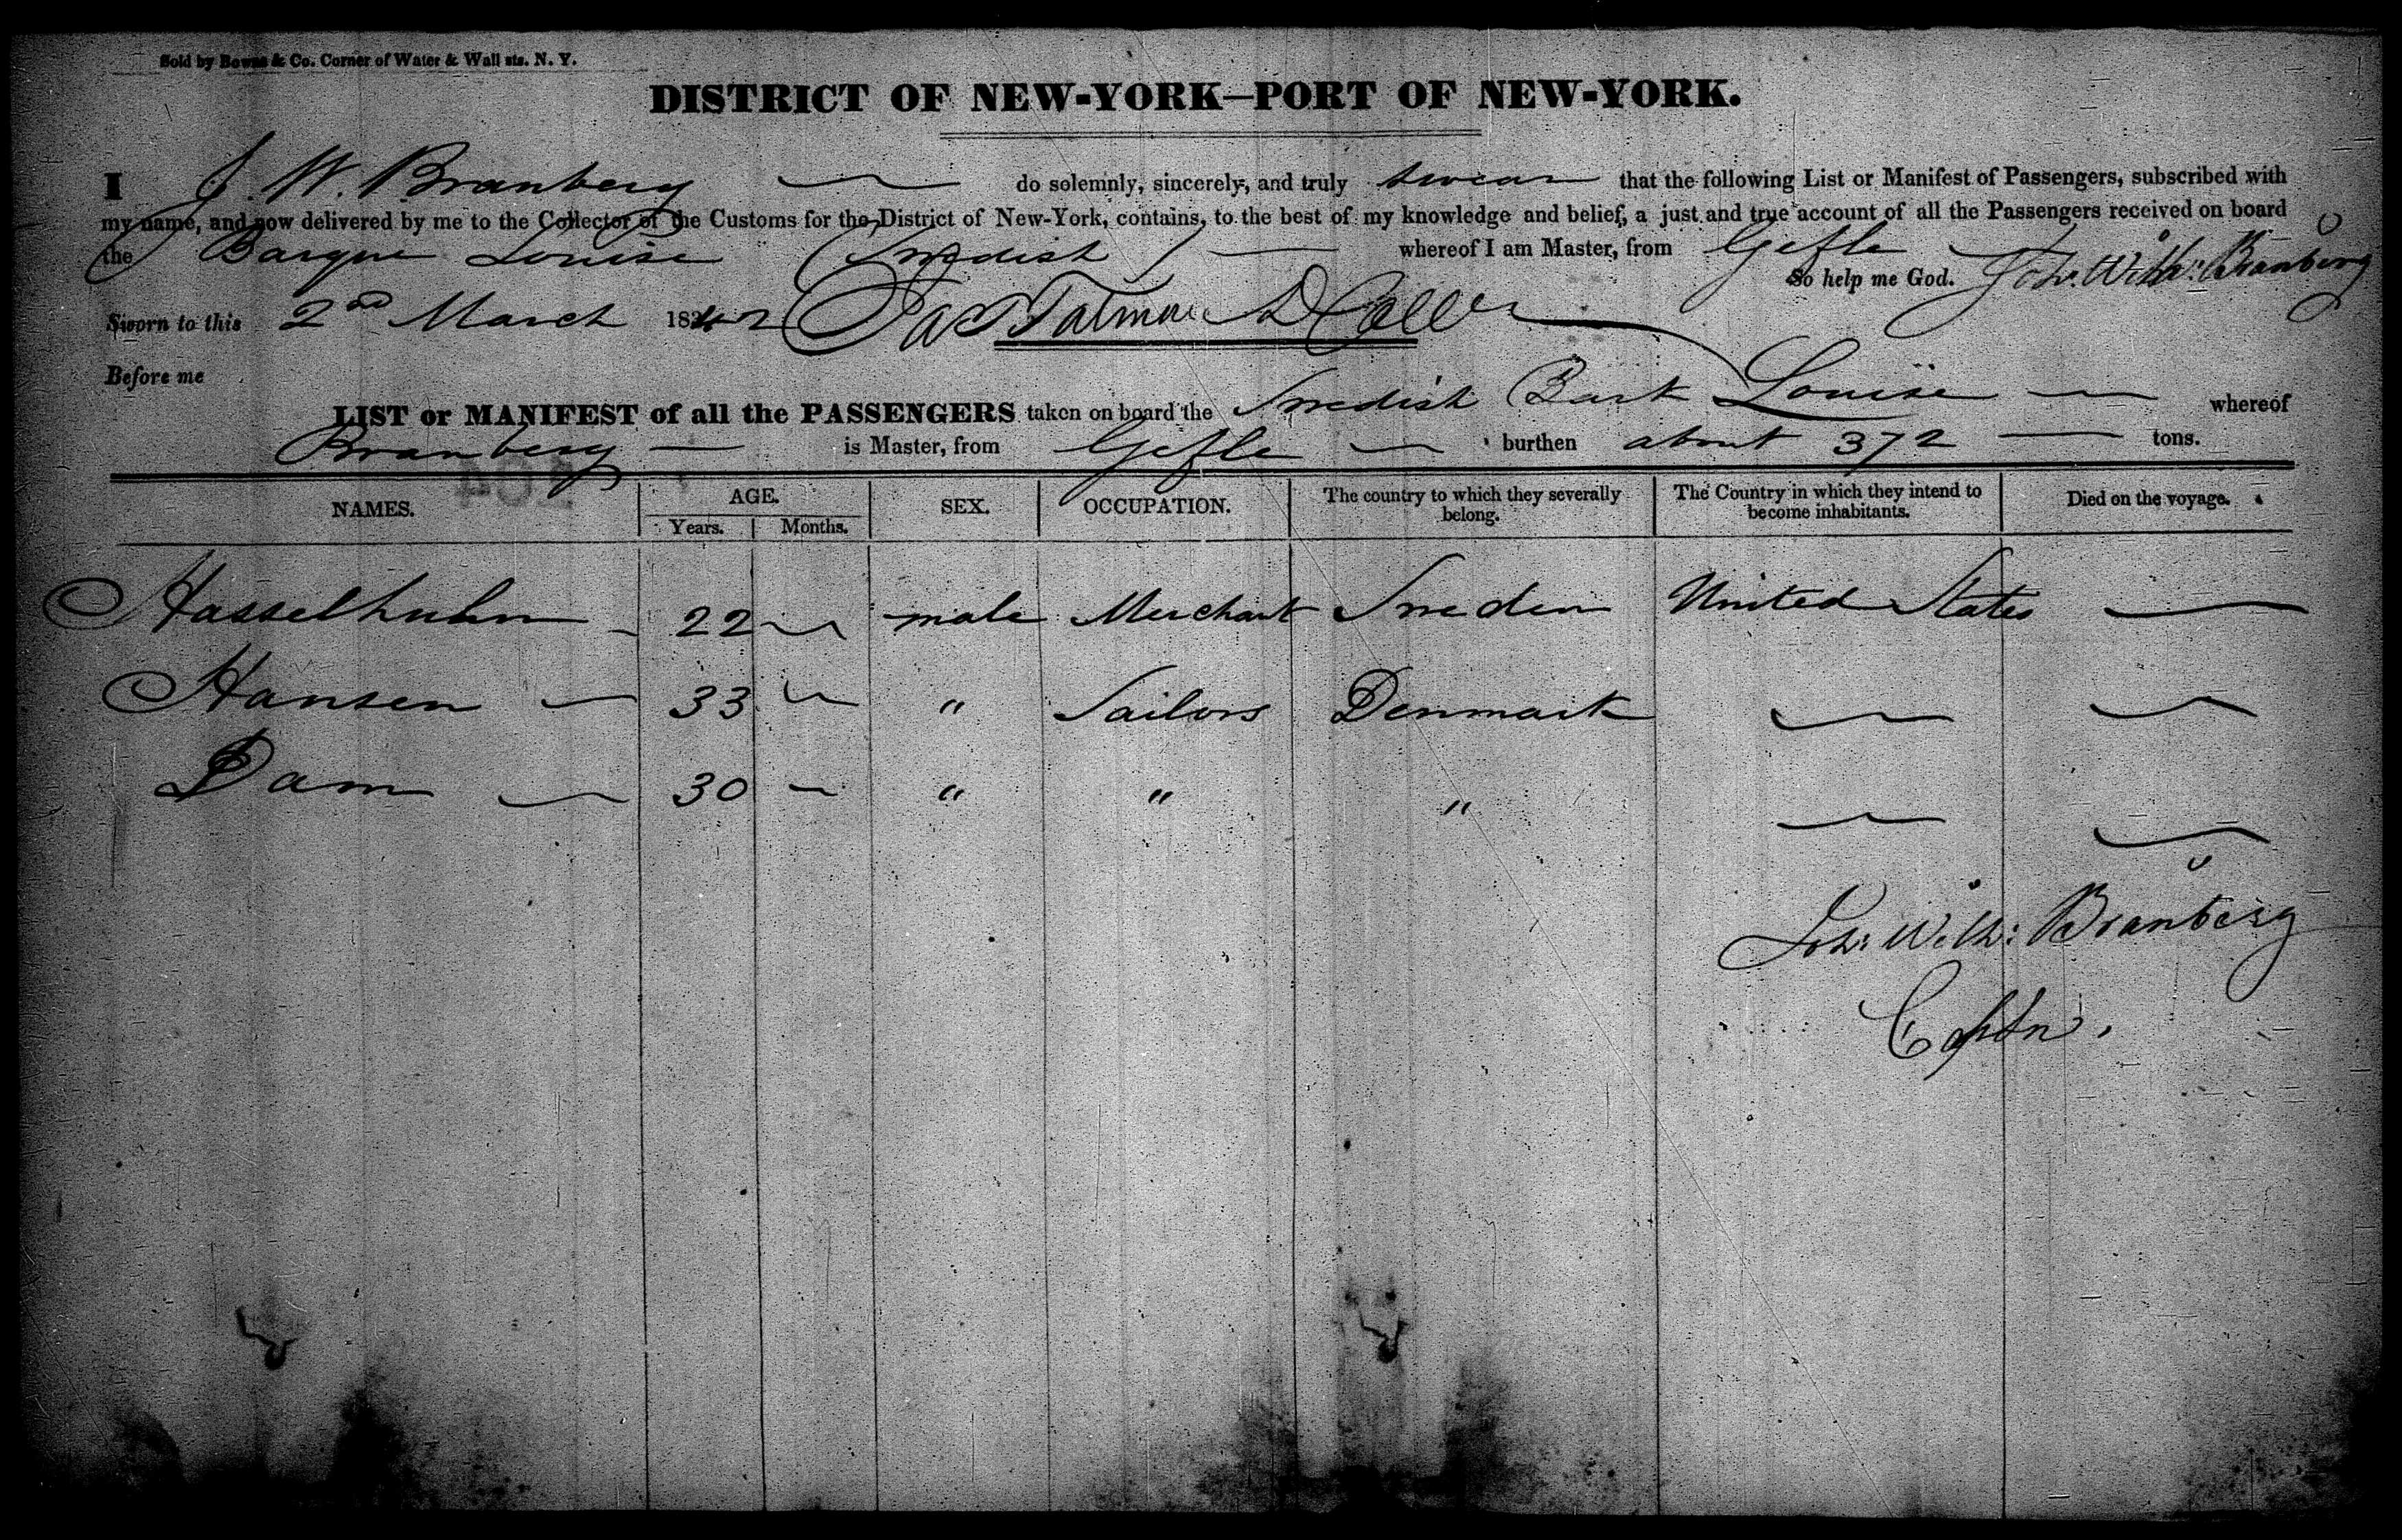 Sold by Bowne & Co. Corner of Water & Wall sts. N. Y.
DISTRICT OF NEW-YORK—PORT OF NEW-YORK.
I J. W. Branberg do solemnly, sincerely, and truly swear that the following List or Manifest of Passengers, subscribed with
my name, and now delivered by me to the Collector of the Customs for the District of New-York, contains, to the best of my knowledge and belief, a just and true account of all the Passengers received on board
the Barque Louise (Swedish) whereof I am Master, from Gefle
So help me God. Joh: Wilh: Branberg
Sworn to this 2nd March 1842
Before me
LIST or MANIFEST of all the PASSENGERS taken on board the Swedish Bark Louise whereof
Branberg is Master, from Gefle burthen about 372 tons.
NAMES. AGE. Years. Months. SEX. OCCUPATION. The country to which they severally belong. The Country in which they intend to become inhabitants. Died on the voyage.
Hasselhuhn 22 male Merchant Sweden United States —
Hansen — 33 — " Sailors Denmark — —
Dam — 30 — " " " — —
Joh: Wilh: Branberg
Captn.